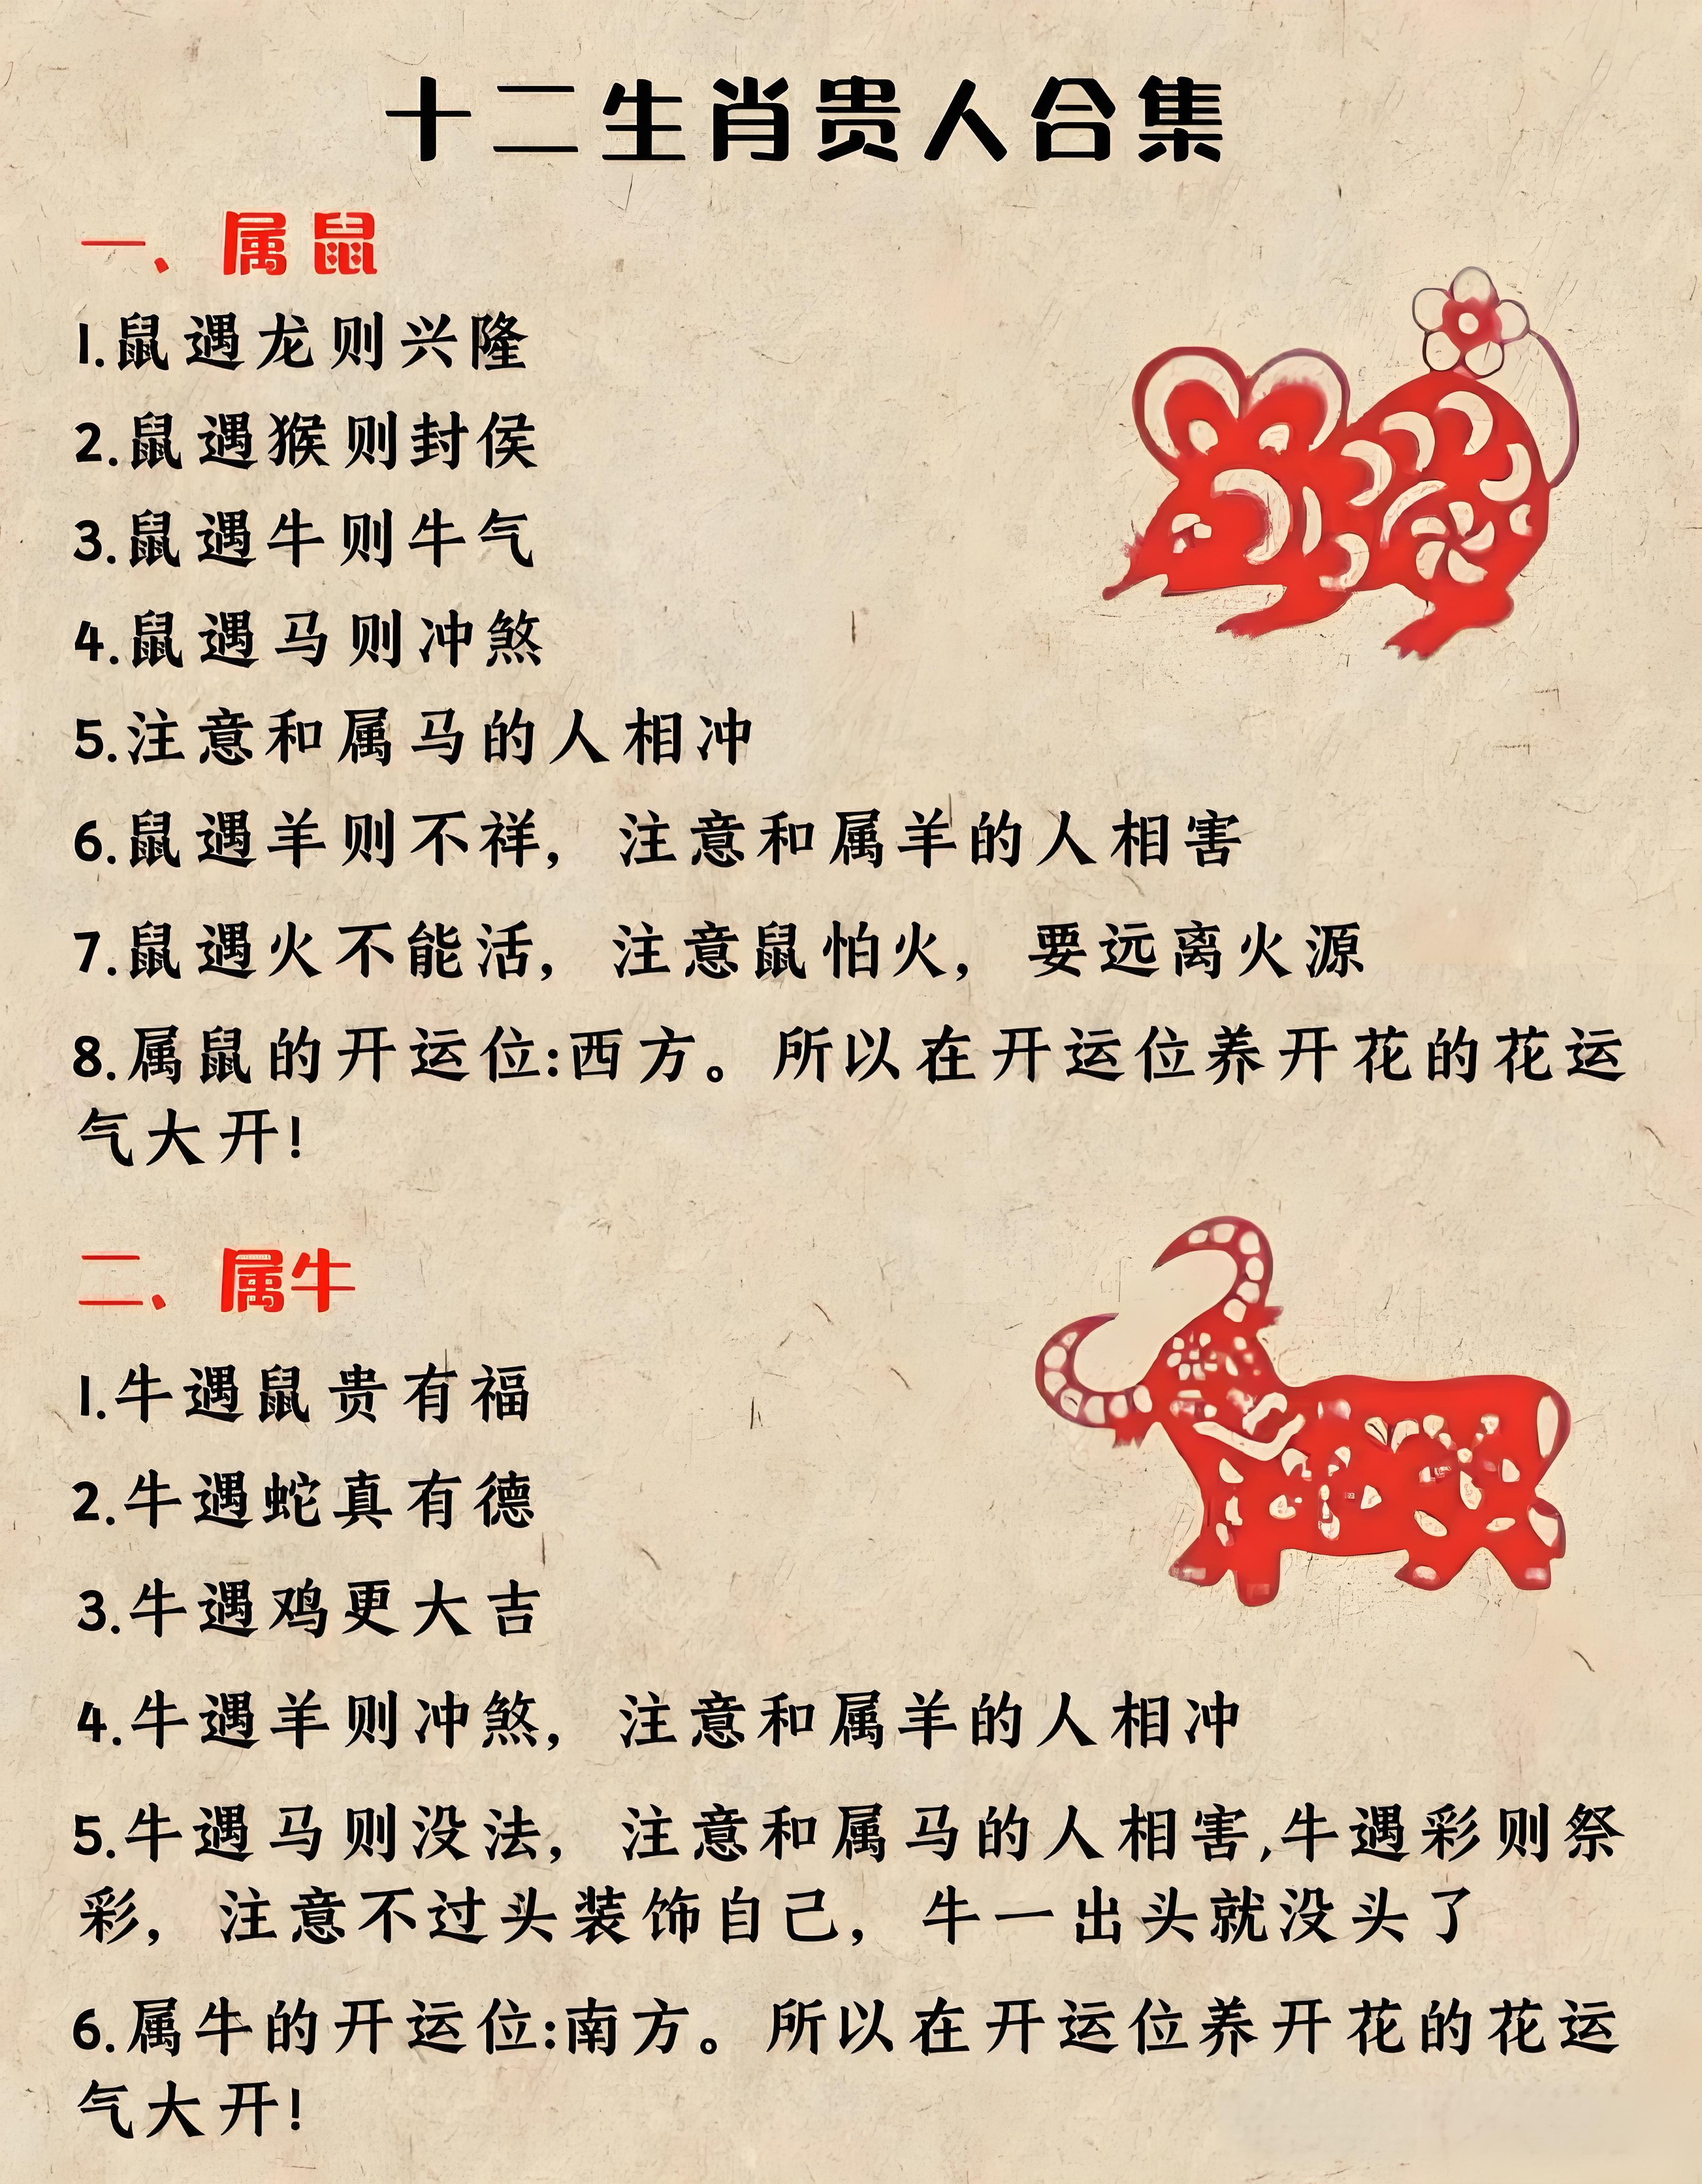 十二生肖贵人合集
一、属鼠
1.鼠遇龙则兴隆
2.鼠遇猴则封侯
3.鼠遇牛则牛气
4.鼠遇马则冲煞
5.注意和属马的人相冲
6.鼠遇羊则不祥，注意和属羊的人相害
7.鼠遇火不能活，注意鼠怕火，要远离火源
8.属鼠的开运位:西方。所以在开运位养开花的花运
气大开!
二、属牛
1.牛遇鼠贵有福
2.牛遇蛇真有德
3.牛遇鸡更大吉
4.牛遇羊则冲煞，注意和属羊的人相冲
5.牛遇马则没法，注意和属马的人相害,牛遇彩则祭
彩，注意不过头装饰自己，牛一出头就没头了
6.属牛的开运位:南方。所以在开运位养开花的花运
气大开!